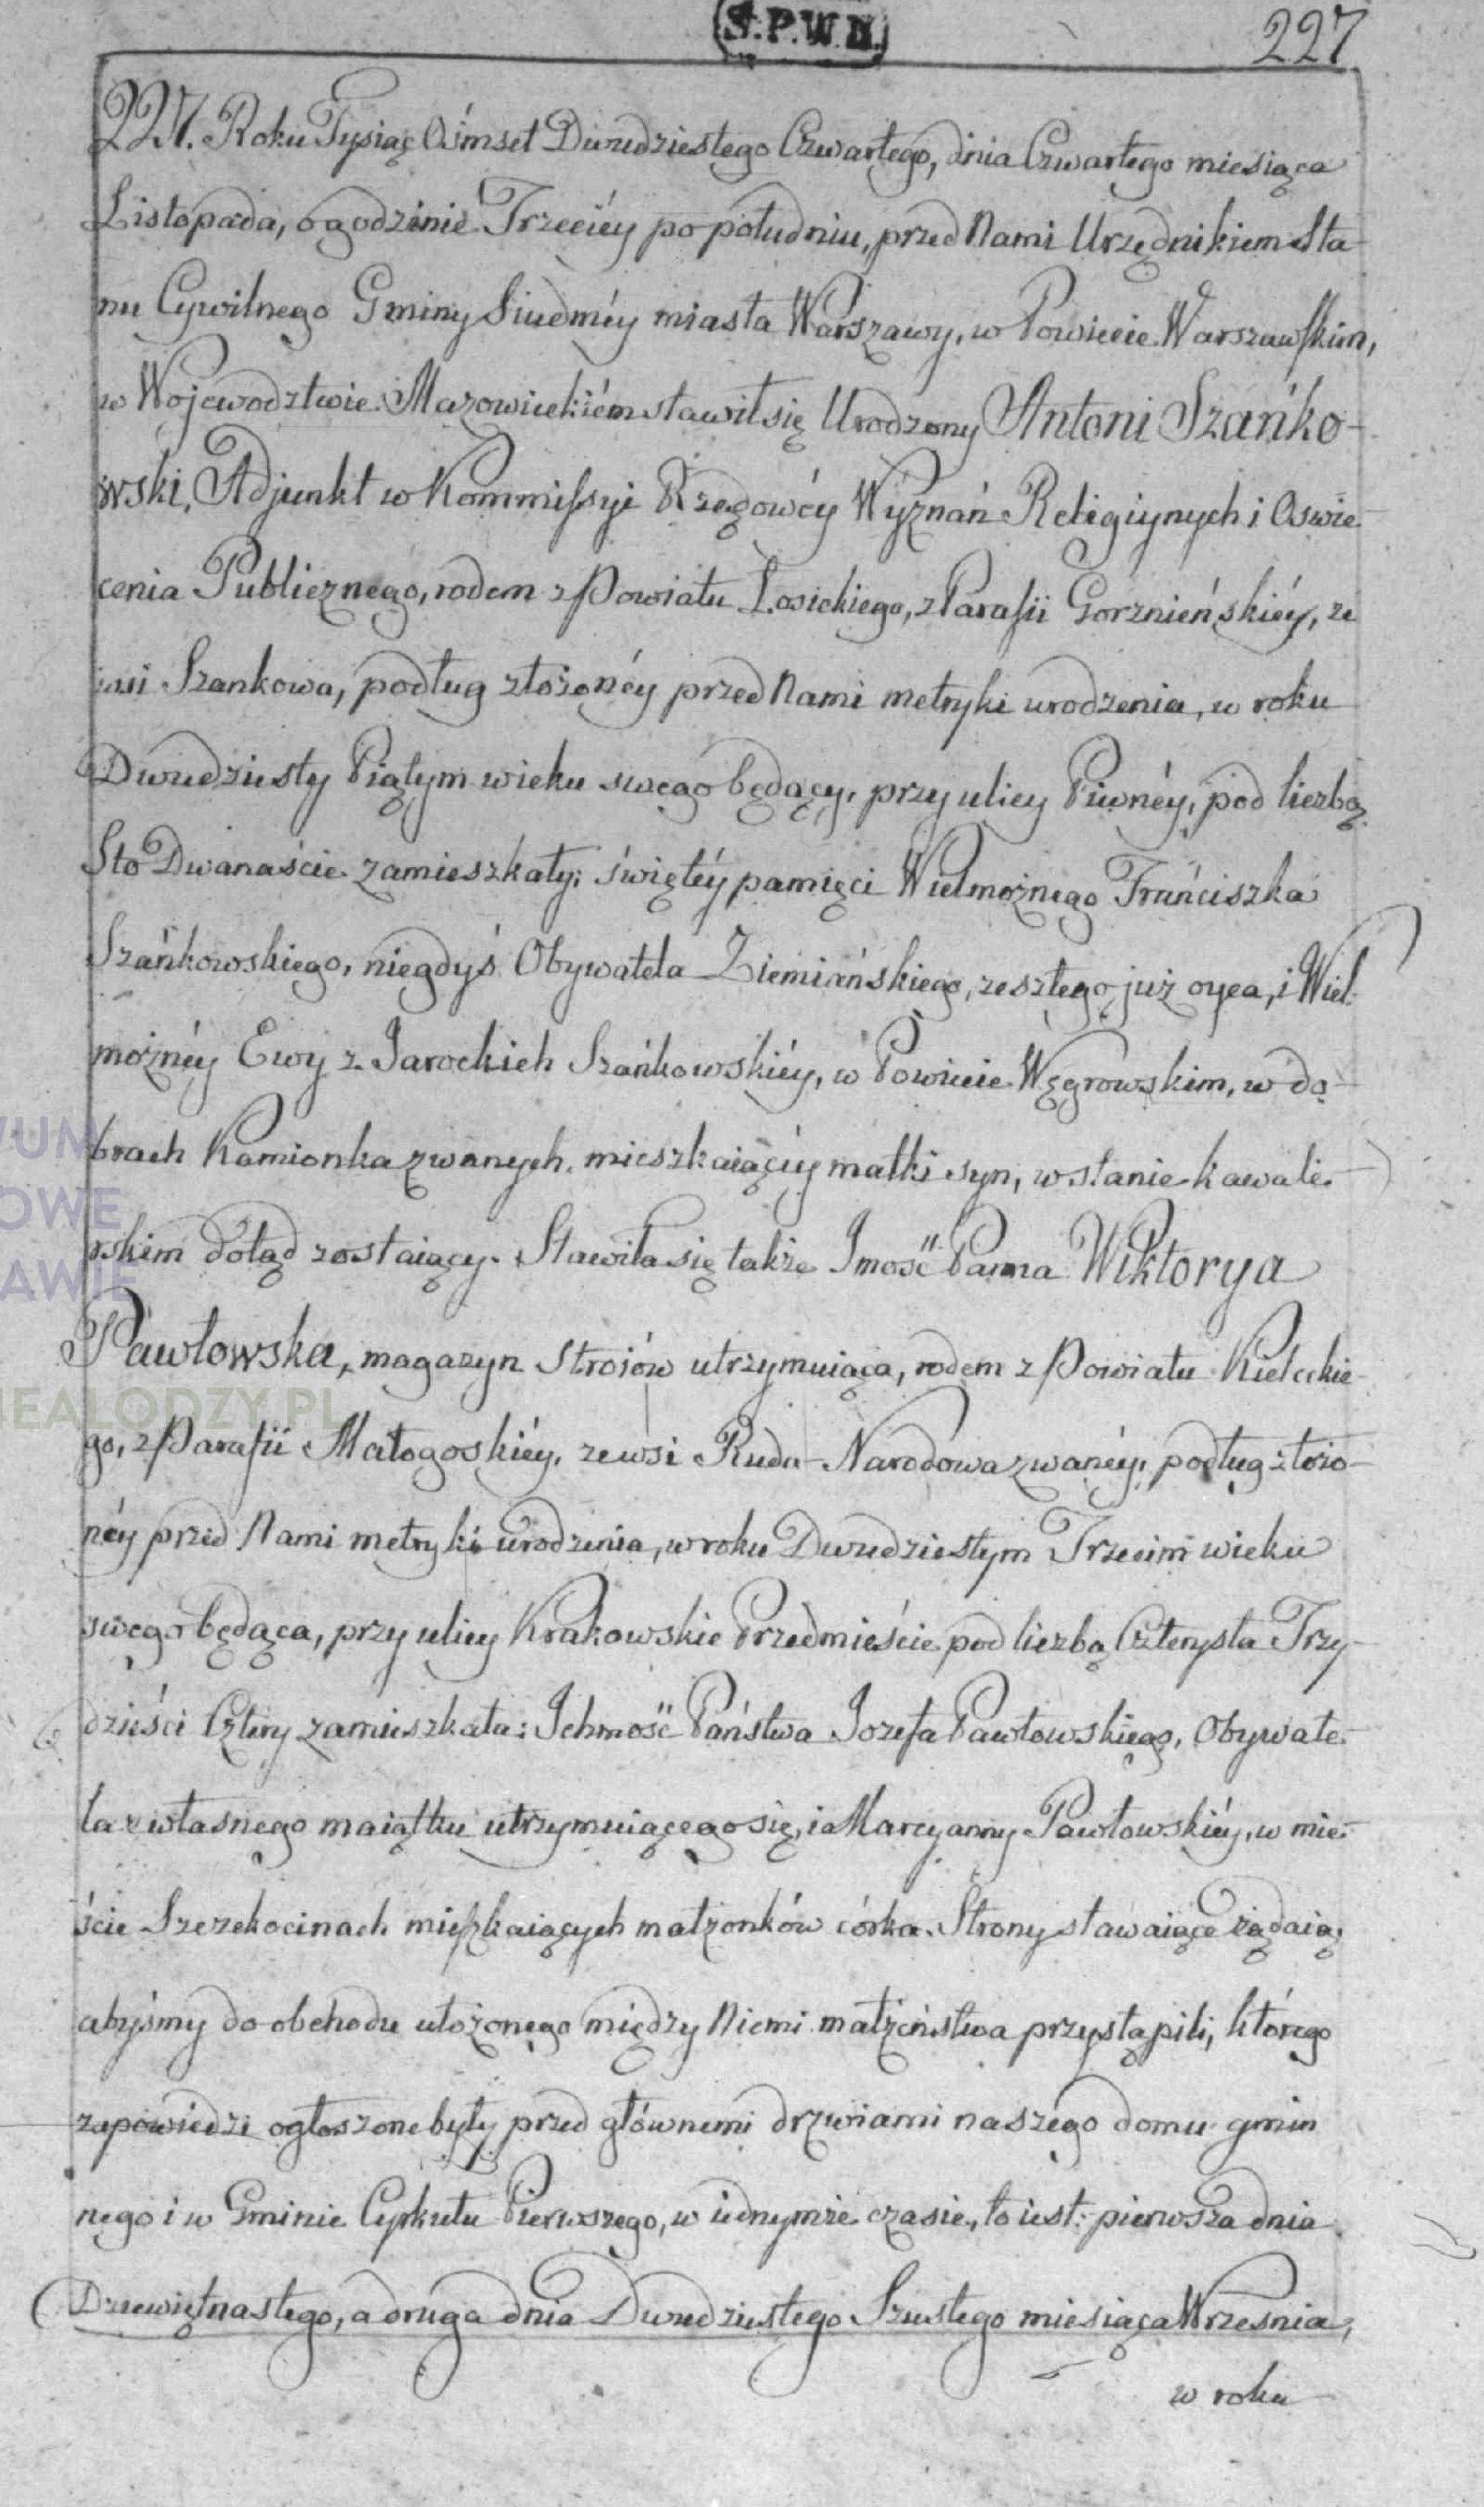 S.P.W.N.
227
227. Roku Tysiąc Ośmset Dwudziestego Czwartego, dnia Czwartego miesiąca
Listopada, o godzinie Trzeciéy po południu, przed Nami Urzędnikiem Sta-
nu Cywilnego Gminy Siudméy miasta Warszawy, w Powiecie Warszawskim,
w Wojewodztwie Mazowieckiém stawił się Urodzony Antoni Szańko-
wski, Adjunkt w Kommissyi Rządowéy Wyznań Religiynych i Oswie-
cenia Publicznego, rodem z Powiatu Łosickiego, z Parafii Gorznieńskiéy, ze
wsi Szankowa, podług złożonéy przed Nami metryki urodzenia, w roku
Dwudziesty Piątym wieku swego będący, przy ulicy Piwnéy, pod liczbą
Sto Dwanaście zamieszkały; świętéy pamięci Wielmożnego Franciszka
Szańkowskiego, niegdyś Obywatela Ziemiańskiego, zeszłego już oyca, i Wiel-
możnéy Ewy z Jarockich Szańkowskiéy, w Powiecie Węgrowskim, w do-
brach Kamionka zwanych, mieszkaiącéy matki syn, w stanie kawale-
rskim dotąd zostaiący. Stawiła się także Jmość Panna Wiktorya
Pawłowska, magazyn Stroiów utrzymuiąca, rodem z Powiatu Kieleckie-
go, z Parafii Małogoskiéy, ze wsi Ruda Narodowa zwanéy, podług złożo-
néy przed Nami metryki urodzenia, w roku Dwudziestym Trzecim wieku
swego będąca, przy ulicy Krakowskie Przedmieście pod liczbą Czterysta Trzy-
dzieści Cztery zamieszkała: Ichmość Państwa Jozefa Pawłowskiego, Obywate-
la z własnego maiątku utrzymuiącego się, i Marcyanny Pawłowskiéy, w mie-
ście Szczekocinach mieszkaiących małżonków córka. Strony stawaiące żądaią,
abyśmy do obchodu ułożonego między Niemi małżeństwa przystąpili, którego
zapowiedzi ogłoszone były przed głównemi drzwiami naszego domu gmin
nego i w Gminie Cyrkułu Pierwszego, w iednymże czasie, to iest: pierwsza dnia
Dziewiętnastego, a druga dnia Dwudziestego Szustego miesiąca Wrzesnia,
w roku